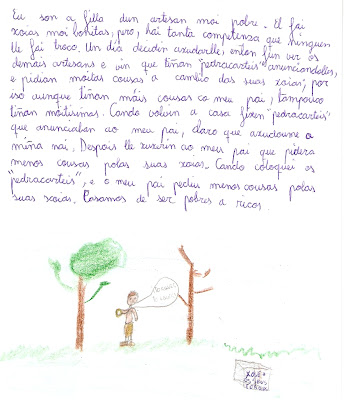 Eu son a filla dun artesan moi pobre. El fai
xoias moi bonitas, pero, hai tanta competenza que ninguen
lle fai troco. Un día decidín axudarlle, entón fun ver os
demáis artesans e vin que tiñan "pedracarteis" anunciandoles,
e pidían moitas cousas a cambio das suas xoias, por
iso aunque tiñan máis cousas co meu pai, tampouco
tiñan moitisimas. Cando volvin a casa fixen "pedracarteis"
que anunciaban ao meu pai, claro que axudoume a
miña nai. Despois lle suxerin ao meu pai que pidera
menos cousas polas suas xoias. Cando coloquei os
"pedracarteis", e o meu pai pediu menos cousas polas
suas xoias. Pasamos de ser pobres a ricos.
XOVES